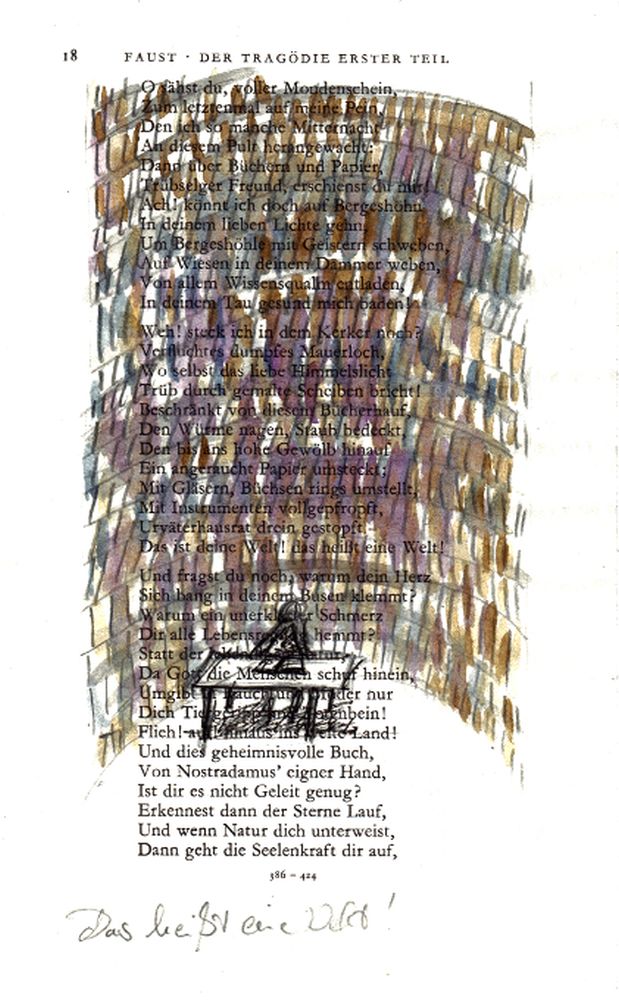 18 FAUST · DER TRAGÖDIE ERSTER TEIL
O sähst du, voller Mondenschein,
Zum letztenmal auf meine Pein,
Den ich so manche Mitternacht
An diesem Pult herangewacht:
Dann über Büchern und Papier,
Trübselger Freund, erschienst du mir!
Ach! könnt ich doch auf Bergeshöhn
In deinem lieben Lichte gehn,
Um Bergeshöhle mit Geistern schweben,
Auf Wiesen in deinem Dämmer weben,
Von allem Wissensqualm entladen,
In deinem Tau gesund mich baden!
Weh! steck ich in dem Kerker noch?
Verfluchtes dumpfes Mauerloch,
Wo selbst das liebe Himmelslicht
Trüb durch gemalte Scheiben bricht!
Beschränkt von diesem Bücherhauf,
Den Würme nagen, Staub bedeckt,
Den bis ans hohe Gewölb hinauf
Ein angeraucht Papier umsteckt;
Mit Gläsern, Büchsen rings umstellt,
Mit Instrumenten vollgepfropft,
Urväterhausrat drein gestopft,
Das ist deine Welt! das heißt eine Welt!
Und fragst du noch, warum dein Herz
Sich bang in deinem Busen klemmt?
Warum ein unerklärter Schmerz
Dir alle Lebensregung hemmt?
Statt der lebendigen Natur,
Da Gott die Menschen schuf hinein,
Umgibt in Rauch und Moder nur
Dich Tiergeripp und Totenbein!
Flieh! auf! hinaus ins weite Land!
Und dies geheimnisvolle Buch,
Von Nostradamus' eigner Hand,
Ist dir es nicht Geleit genug?
Erkennest dann der Sterne Lauf,
Und wenn Natur dich unterweist,
Dann geht die Seelenkraft dir auf,
386 – 424
Das heißt eine Welt!